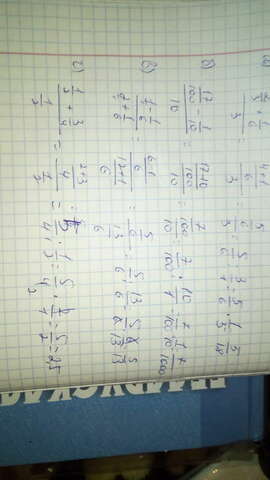 а) (2/3 + 1/6)/3 = ((4+1)/6)/3 = (5/6)/3 = 5/6 : 3 = 5/6 · 1/3 = 5/18
б) (17/100 - 1/10)/10 = ((17-10)/100)/10 = (7/100)/10 = 7/100 : 10/1 = 7/100 · 1/10 = 7/1000
в) (1 - 1/6)/(2 + 1/6) = ((6-1)/6)/((12+1)/6) = (5/6)/(13/6) = 5/6 : 13/6 = 5/6 · 6/13 = 5/13
г) (1/2 + 3/4)/(1/2) = ((2+3)/4)/(1/2) = 5/4 : 1/2 = 5/4 · 2/1 = 5/2 = 2,5